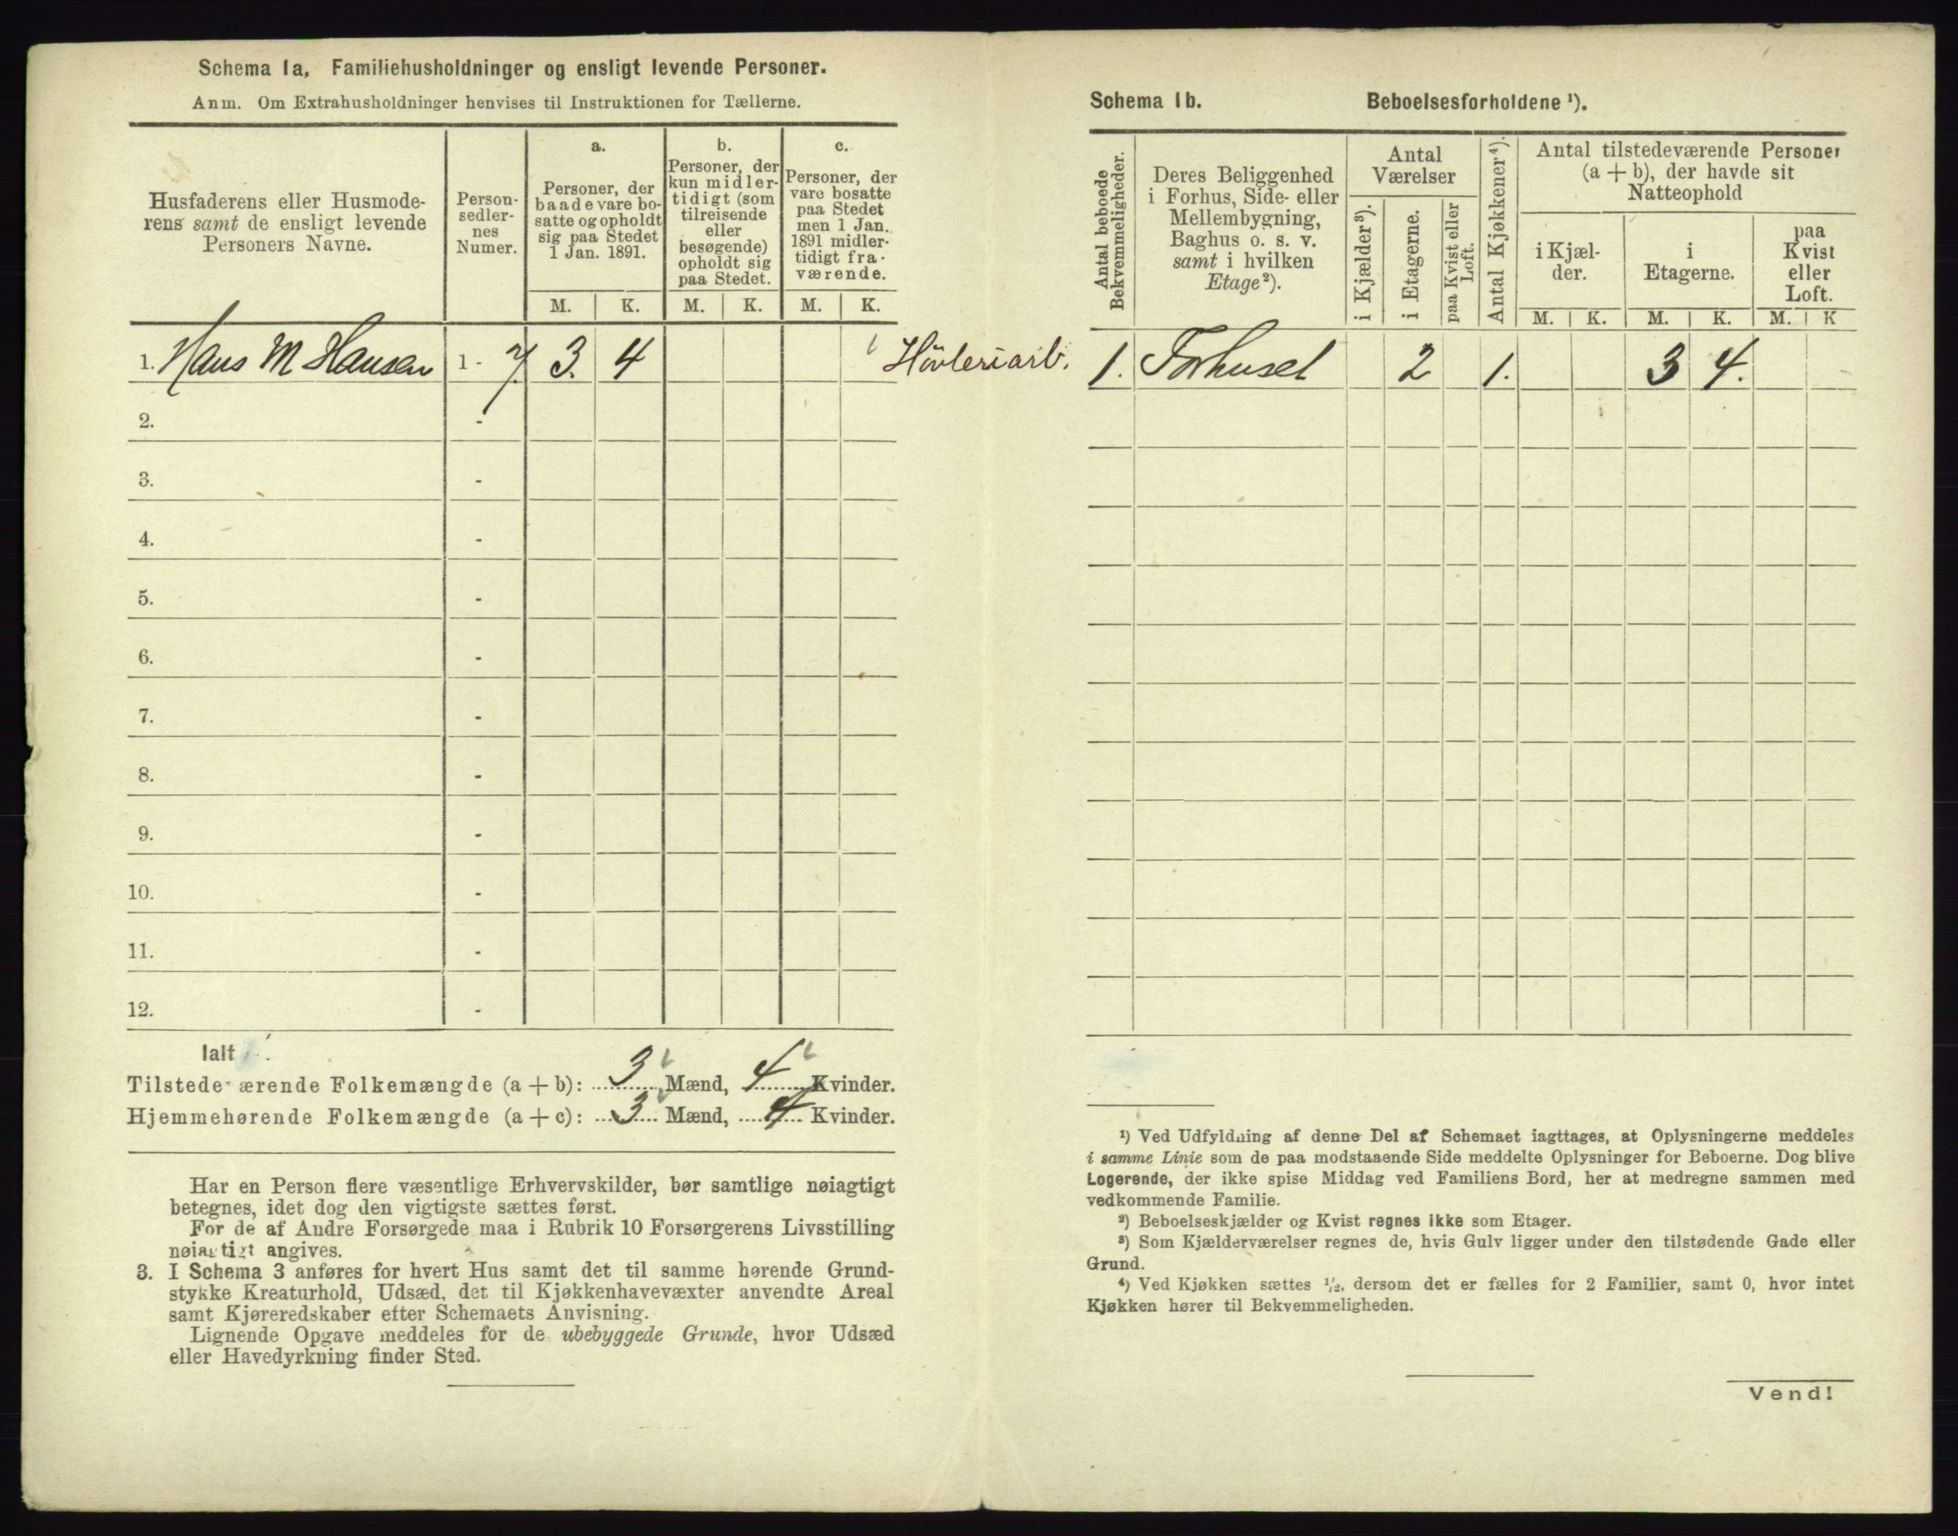 Schema 1a, Familiehusholdninger og ensligt levende Personer.
Anm. Om Extrahusholdninger henvises til Instruktionen for Tællerne.
Husfaderens eller Husmode-
rens samt de ensligt levende
Personers Navne.
Person-
sedler-
nes
Numer.
a.
Personer, der
baade vare bo-
satte og opholdt
sig paa Stedet
1 Jan. 1891.
b.
Personer, der
kun midler-
tidigt (som
tilreisende
eller
besøgende)
opholdt sig
paa Stedet.
c.
Personer, der
vare bosatte
paa Stedet
men 1 Jan.
1891 midler-
tidigt fra-
værende.
M. K. M. K. M. K.
1. Hans M Hansen 1 - 7. 3. 4 Hövleriarb.
2. -
3. -
4. -
5. -
6. -
7. -
8. -
9. -
10. -
11. -
12. -
Ialt
Tilstedeværende Folkemængde (a + b): 3 Mænd, 4 Kvinder.
Hjemmehørende Folkemængde (a + c): 3 Mænd, 4 Kvinder.
Har en Person flere væsentlige Erhvervskilder, bør samtlige nøiagtigt
betegnes, idet dog den vigtigste sættes først.
For de af Andre Forsørgede maa i Rubrik 10 Forsørgerens Livsstilling
nøiagtigt angives.
3. I Schema 3 anføres for hvert Hus samt det til samme hørende Grund-
stykke Kreaturhold, Udsæd, det til Kjøkkenhavevæxter anvendte Areal
samt Kjøreredskaber efter Schemaets Anvisning.
Lignende Opgave meddeles for de ubebyggede Grunde, hvor Udsæd
eller Havedyrkning finder Sted.
Schema 1b. Beboelsesforholdene ¹).
Antal beboede
Bekvemmeligheder.
Deres Beliggenhed
i Forhus, Side- eller
Mellembygning,
Baghus o. s. v.
samt i hvilken
Etage ²).
Antal
Værelser
i Kjælder ³).
i Etagerne.
paa Kvist eller
Loft.
Antal Kjøkkener ⁴).
Antal tilstedeværende Personer
(a + b), der havde sit
Natteophold
i Kjæl-
der.
i
Etagerne.
paa
Kvist
eller
Loft.
M. K. M. K. M. K
1. Forhuset 2 1. 3 4.
¹) Ved Udfyldning af denne Del af Schemaet iagttages, at Oplysningerne meddeles
i samme Linie som de paa modstaaende Side meddelte Oplysninger for Beboerne. Dog blive
Logerende, der ikke spise Middag ved Familiens Bord, her at medregne sammen med
vedkommende Familie.
²) Beboelseskjælder og Kvist regnes ikke som Etager.
³) Som Kjælderværelser regnes de, hvis Gulv ligger under den tilstødende Gade eller
Grund.
⁴) Ved Kjøkken sættes ½, dersom det er fælles for 2 Familier, samt 0, hvor intet
Kjøkken hører til Bekvemmeligheden.
Vend!